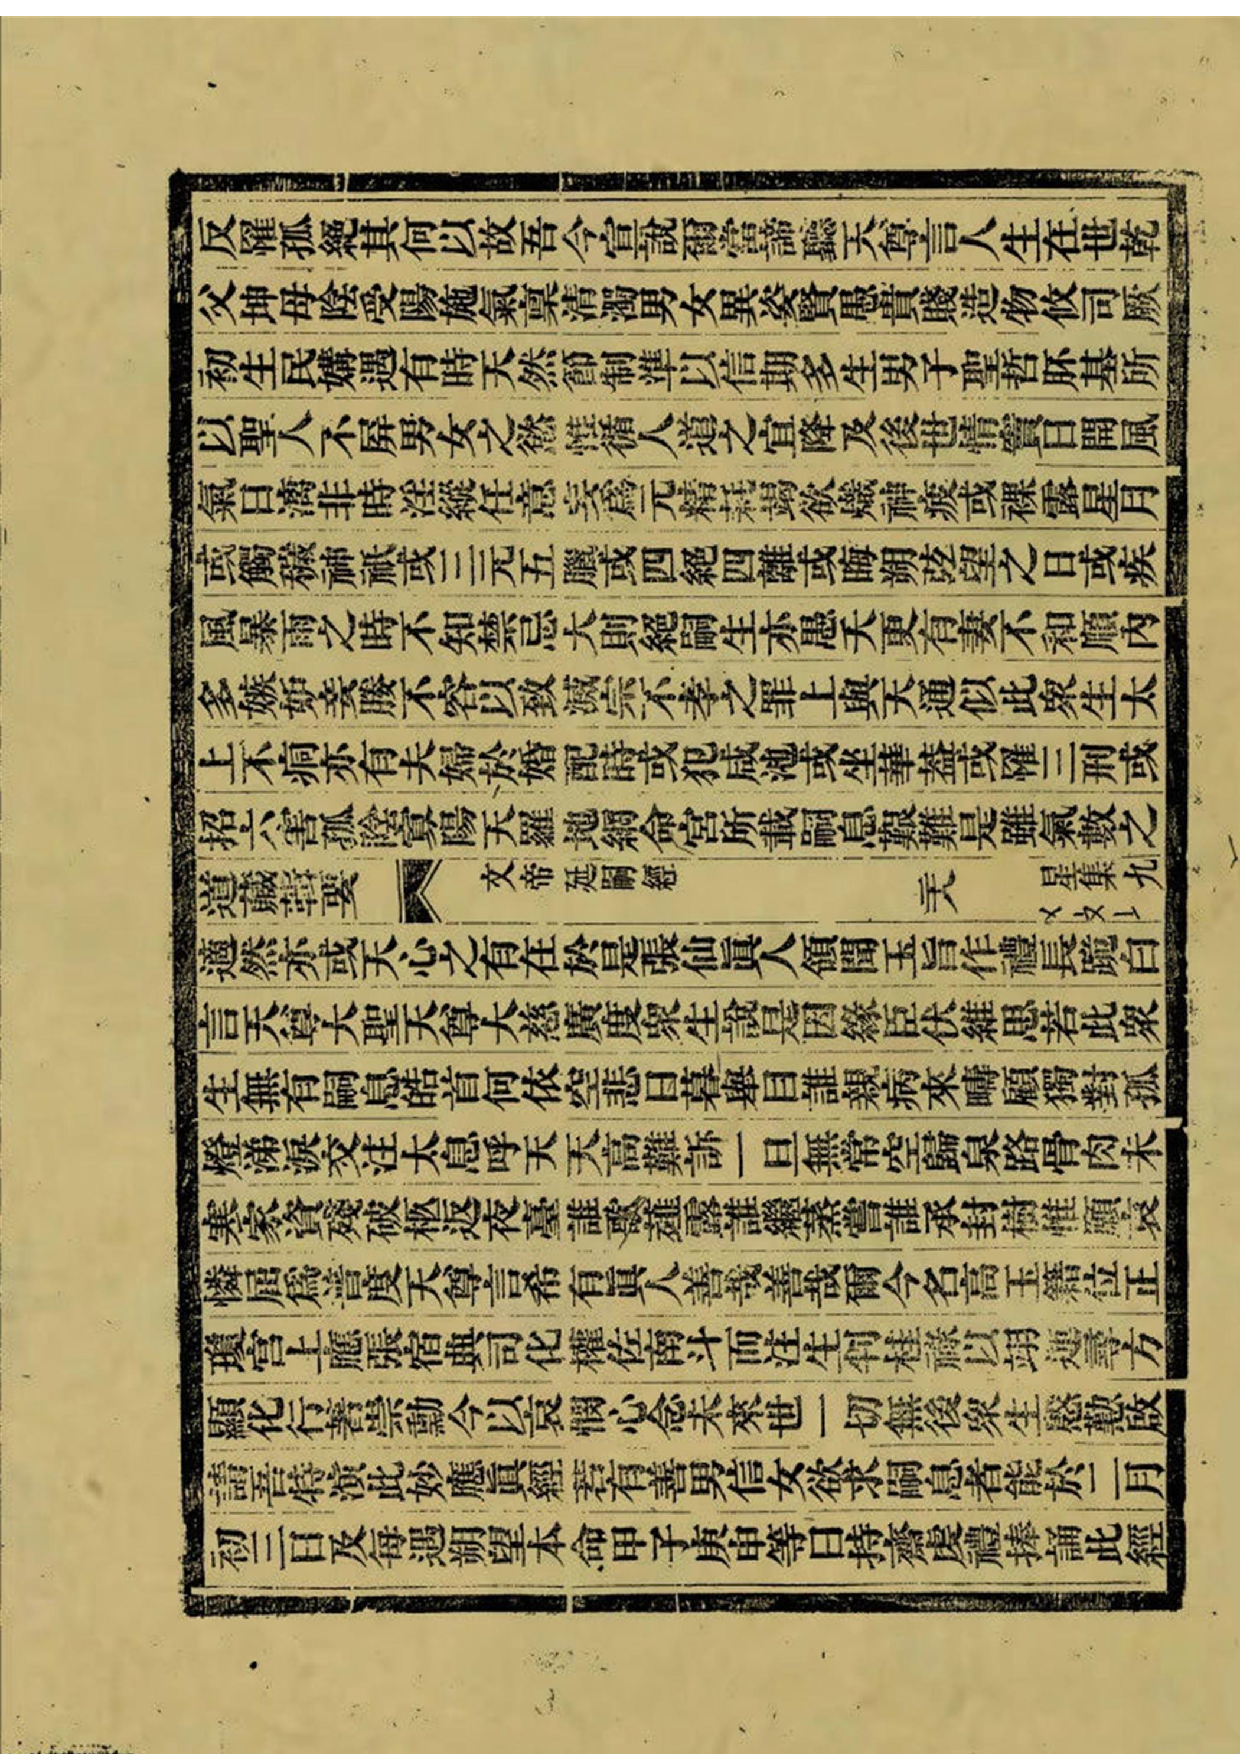 反罹孤絕其何以故吾今宣說爾當諦聽天尊言人生在世乾
父坤母陰受陽施氣禀清濁男女異姿賢愚貴賤造物攸司厥
初生民媾遇有時天然節制準以信期多生男子聖哲胚基所
以聖人不屏男女之慾惟循人道之宜降及後世情竇日開風
氣日漓非時淫縱任意妄爲元精耗竭欲熾神疲或裸露星月
或觸穢神祇或三元五臘或四絕四離或晦朔弦望之日或疾
風暴雨之時不知禁忌大則絕嗣生亦愚夭更有妻不和順內
多嫉妒妾媵不容以致滅宗不孝之罪上與天通似此衆生太
上不痌亦有夫婦於婚配時或犯咸池或坐華蓋或罹三刑或
招六害孤陰寡陽天羅地網命宮所載嗣息艱難是雖氣數之
道藏輯要 文帝延嗣經 三六 星集九
適然亦或天心之有在於是張仙眞人領聞玉旨作禮長跪白
言天尊大聖天尊大慈廣度衆生說是因緣臣伏維思若此衆
生無有嗣息皓首何依空悲日暮舉目誰親病來疇顧獨對孤
燈涕淚交注太息呼天天高難訴一旦無常空歸泉路骨肉未
寒家資殘破柩返夜臺誰歌薤露誰繼蒸嘗誰承封樹惟願哀
憐屈爲普度天尊言希有眞人善哉善哉爾今名高玉籍位正
瓊宮上應張宿典司化權佐南斗而注生何桂祿以翊運尋方
顯化行著崇勳今以哀憫心念未來世一切無後衆生慇懃啟
請吾特演此妙應眞經若有善男信女欲求嗣息者能於二月
初三日及每遇朔望本命甲子庚申等日持齋虔禮捧誦此經